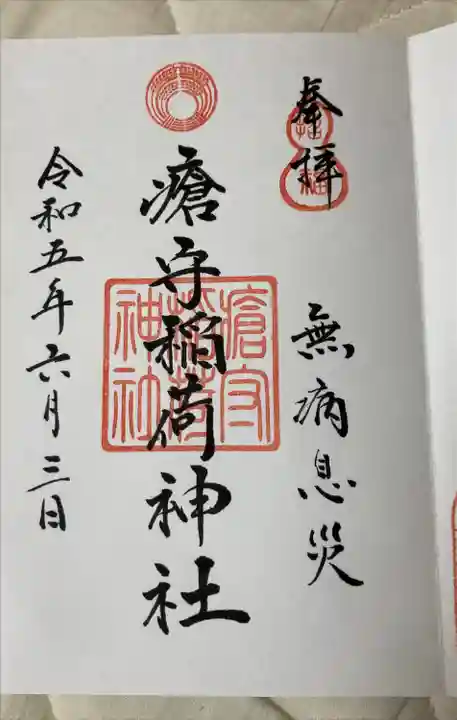 奉拝
無病息災
瘡守稲荷神社
瘡守
稲荷
神社
令和五年六月三日